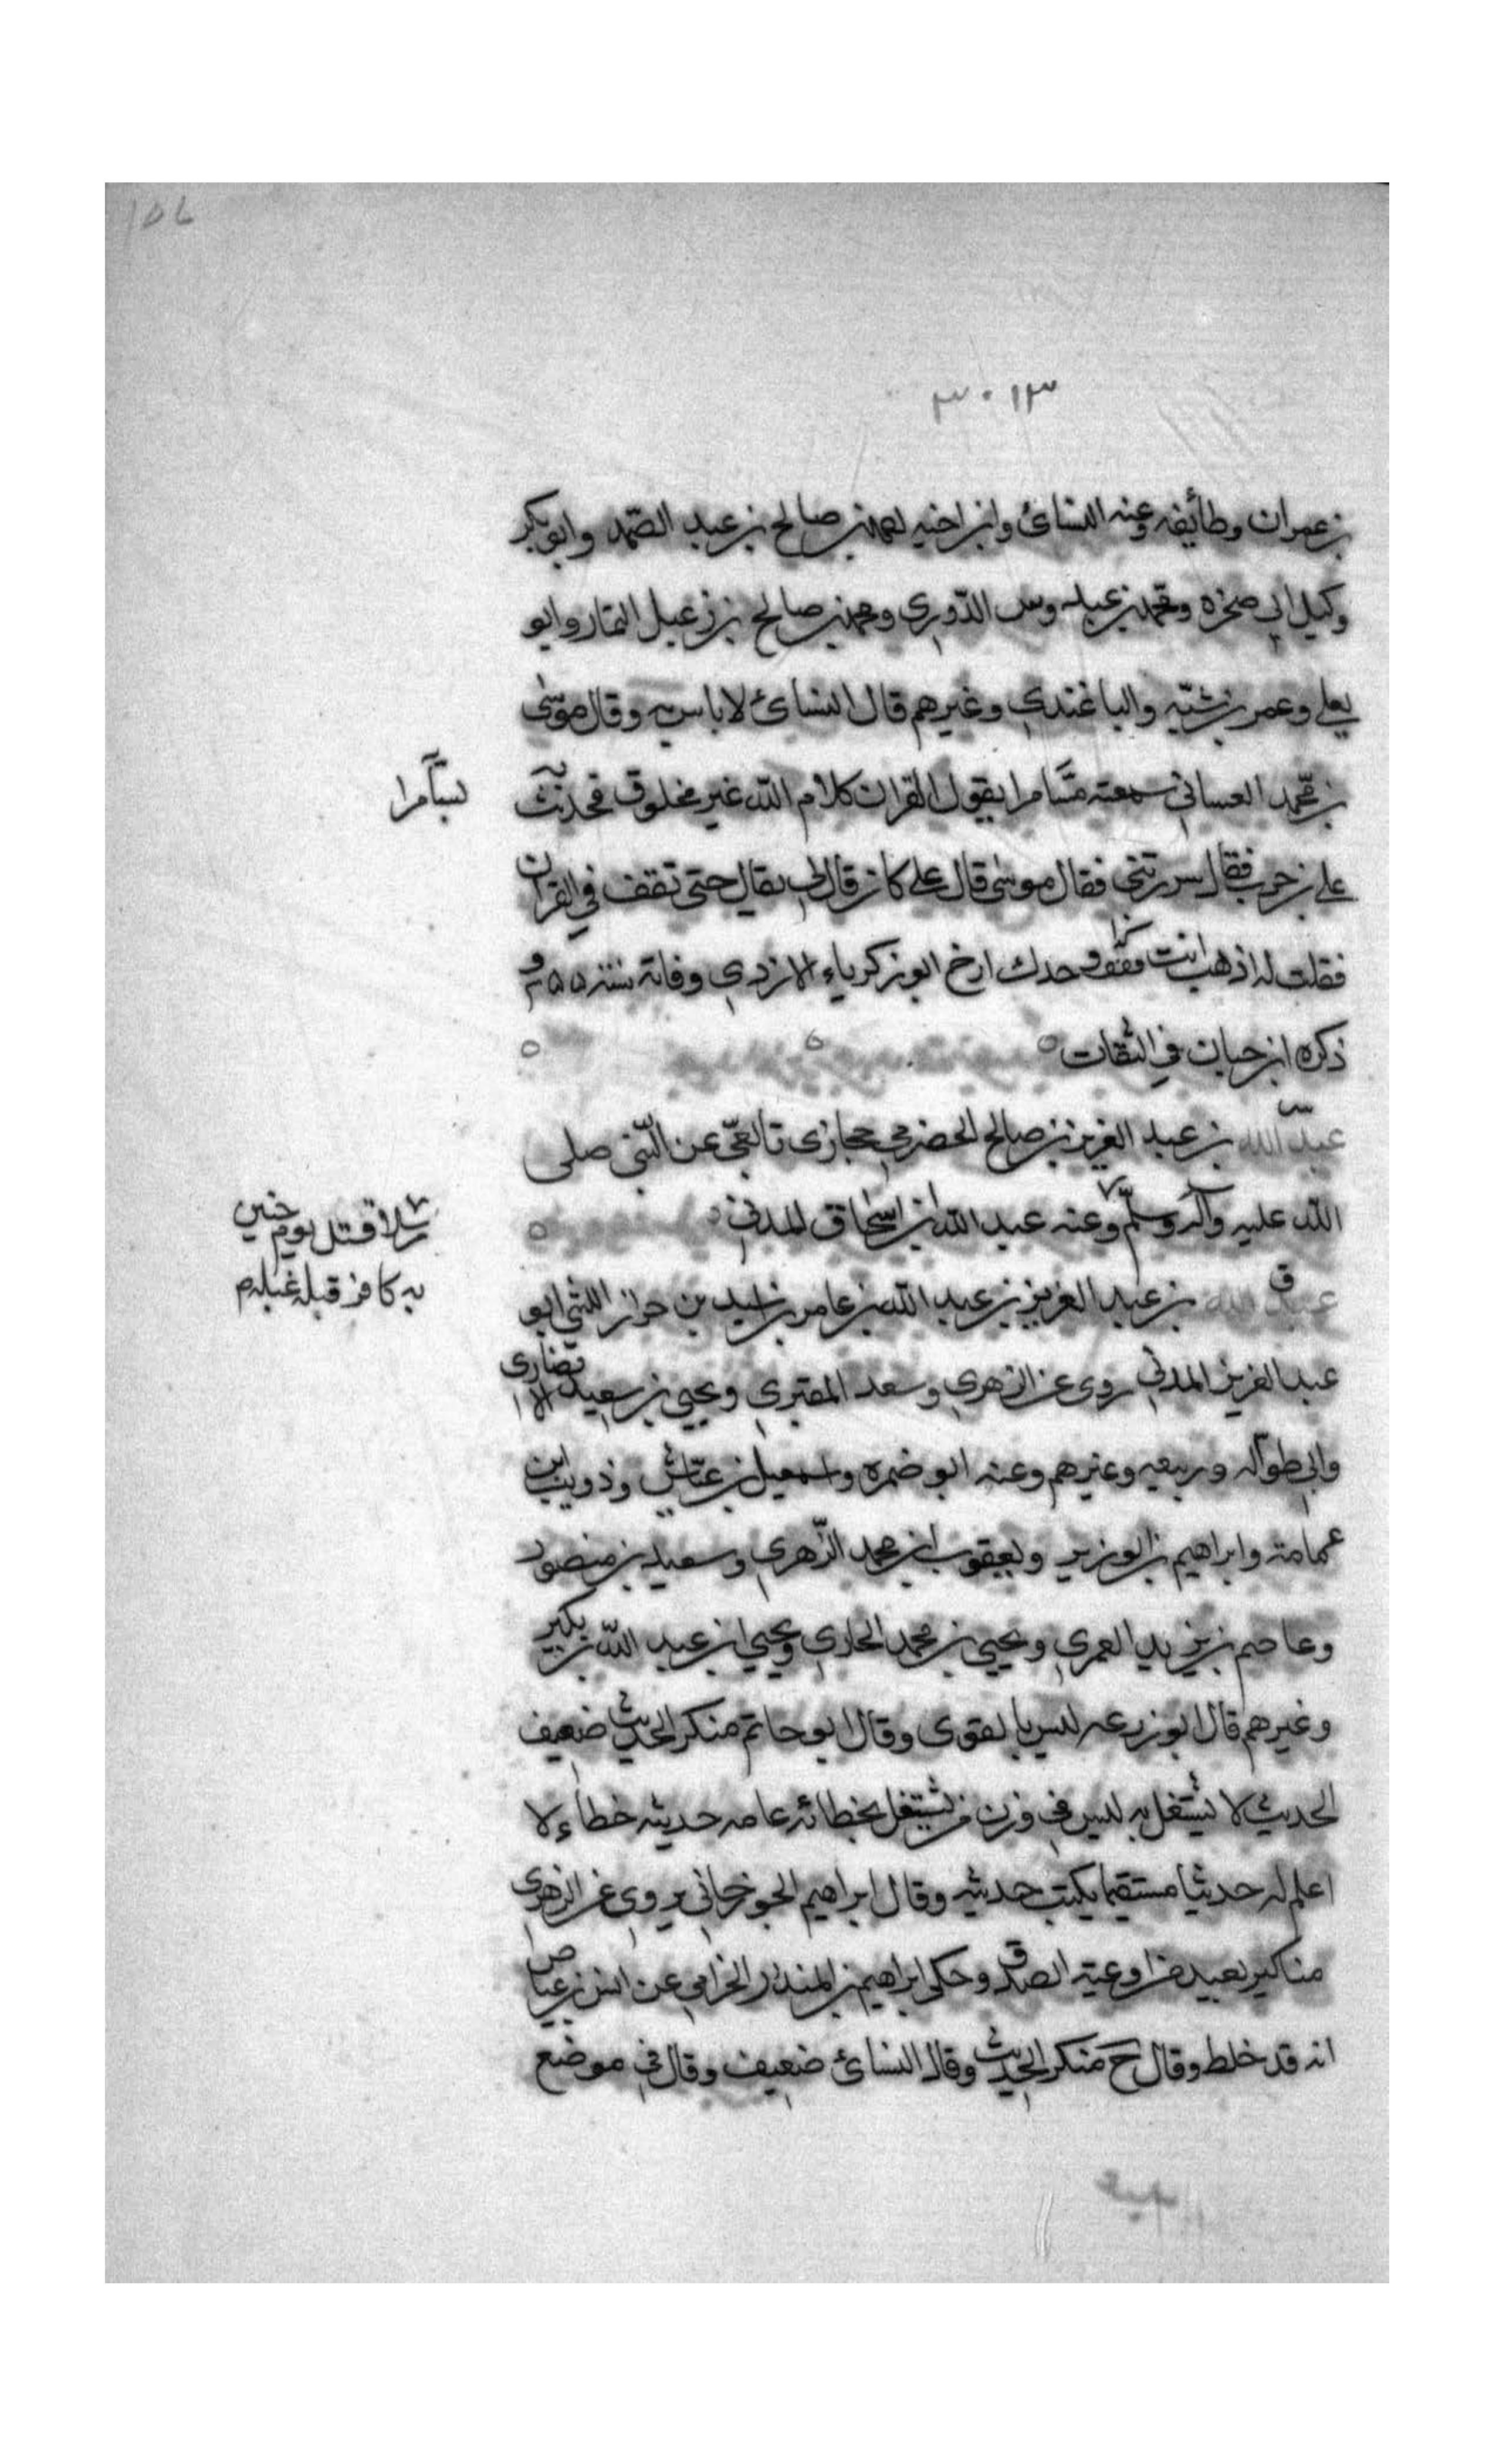 ١٥٦
٣٠١٣
بن عمران وطائفه وعنه النسائ وابن اخيه محمد بن صالح بن عبد الصمد وابو بكر
وكيل ابي صخره ومحمد بن عبد وس الدوري ومحمد بن صالح بن ذر عبل التمار وابو
يعلي وعمر بن شبّه والباغندي وغيرهم قال النسائ لا باس به وقال موسى
بن محمد الغساني سمعته بسامرا يقول القران كلام الله غير مخلوق فحدثت به
بسآمرا
علي بن حرب فقال سررتني فقال موسى قال علي كان قال لي يقال حتى تقف في القران
فقلت له اذهب انت فقف وحدك ارخ ابو زكرياء الازدي وفاته سنة ٢٥٥ و
ذكره ابن حبان في الثقات
عبد الله بن عبد العزيز بن صالح الحضرمي حجازي تابعي عن النبي صلى
الله عليه وآله وسلم وعنه عبد الله ابن اسحاق المدني
مرسلا قتل يوم حنين
به كافر قبله غيله م
عبد الله بن عبد العزيز بن عبد الله بن عامر بن اسيد بن حراز الليثي ابو
عبد العزيز المدني روى عن الزهري وسعد المقبري ويحيي بن سعيد الانصاري
وابي طواله وربيعه وغيرهم وعنه ابو ضمره واسمعيل بن عيّاش وذويب ابن
عمامة وابراهيم بن الوزير ويعقوب ابن محمد الزّهري وسعيد بن منصور
وعاصم بن يزيد العمري ويحيي بن محمد الجاري ويحيي ابن عبد الله بن بكير
وغيرهم قال ابو زرعه ليس بالقوى وقال ابو حاتم منكر الحديث ضعيف
الحديث لا يشتغل به ليس في وزن من يشتغل بخطائه عامه حديثه خطاء لا
اعلم له حديثا مستقيما يكتب حديثه وقال ابراهيم الجوزجاني يروي عن الزهري
مناكير بعيد من اوعية الصدق وحكى ابراهيم بن المنذر الحزامي عن انس بن عياض
انه قد خلط وقال خ منكر الحديث وقال النسائ ضعيف وقال في موضع